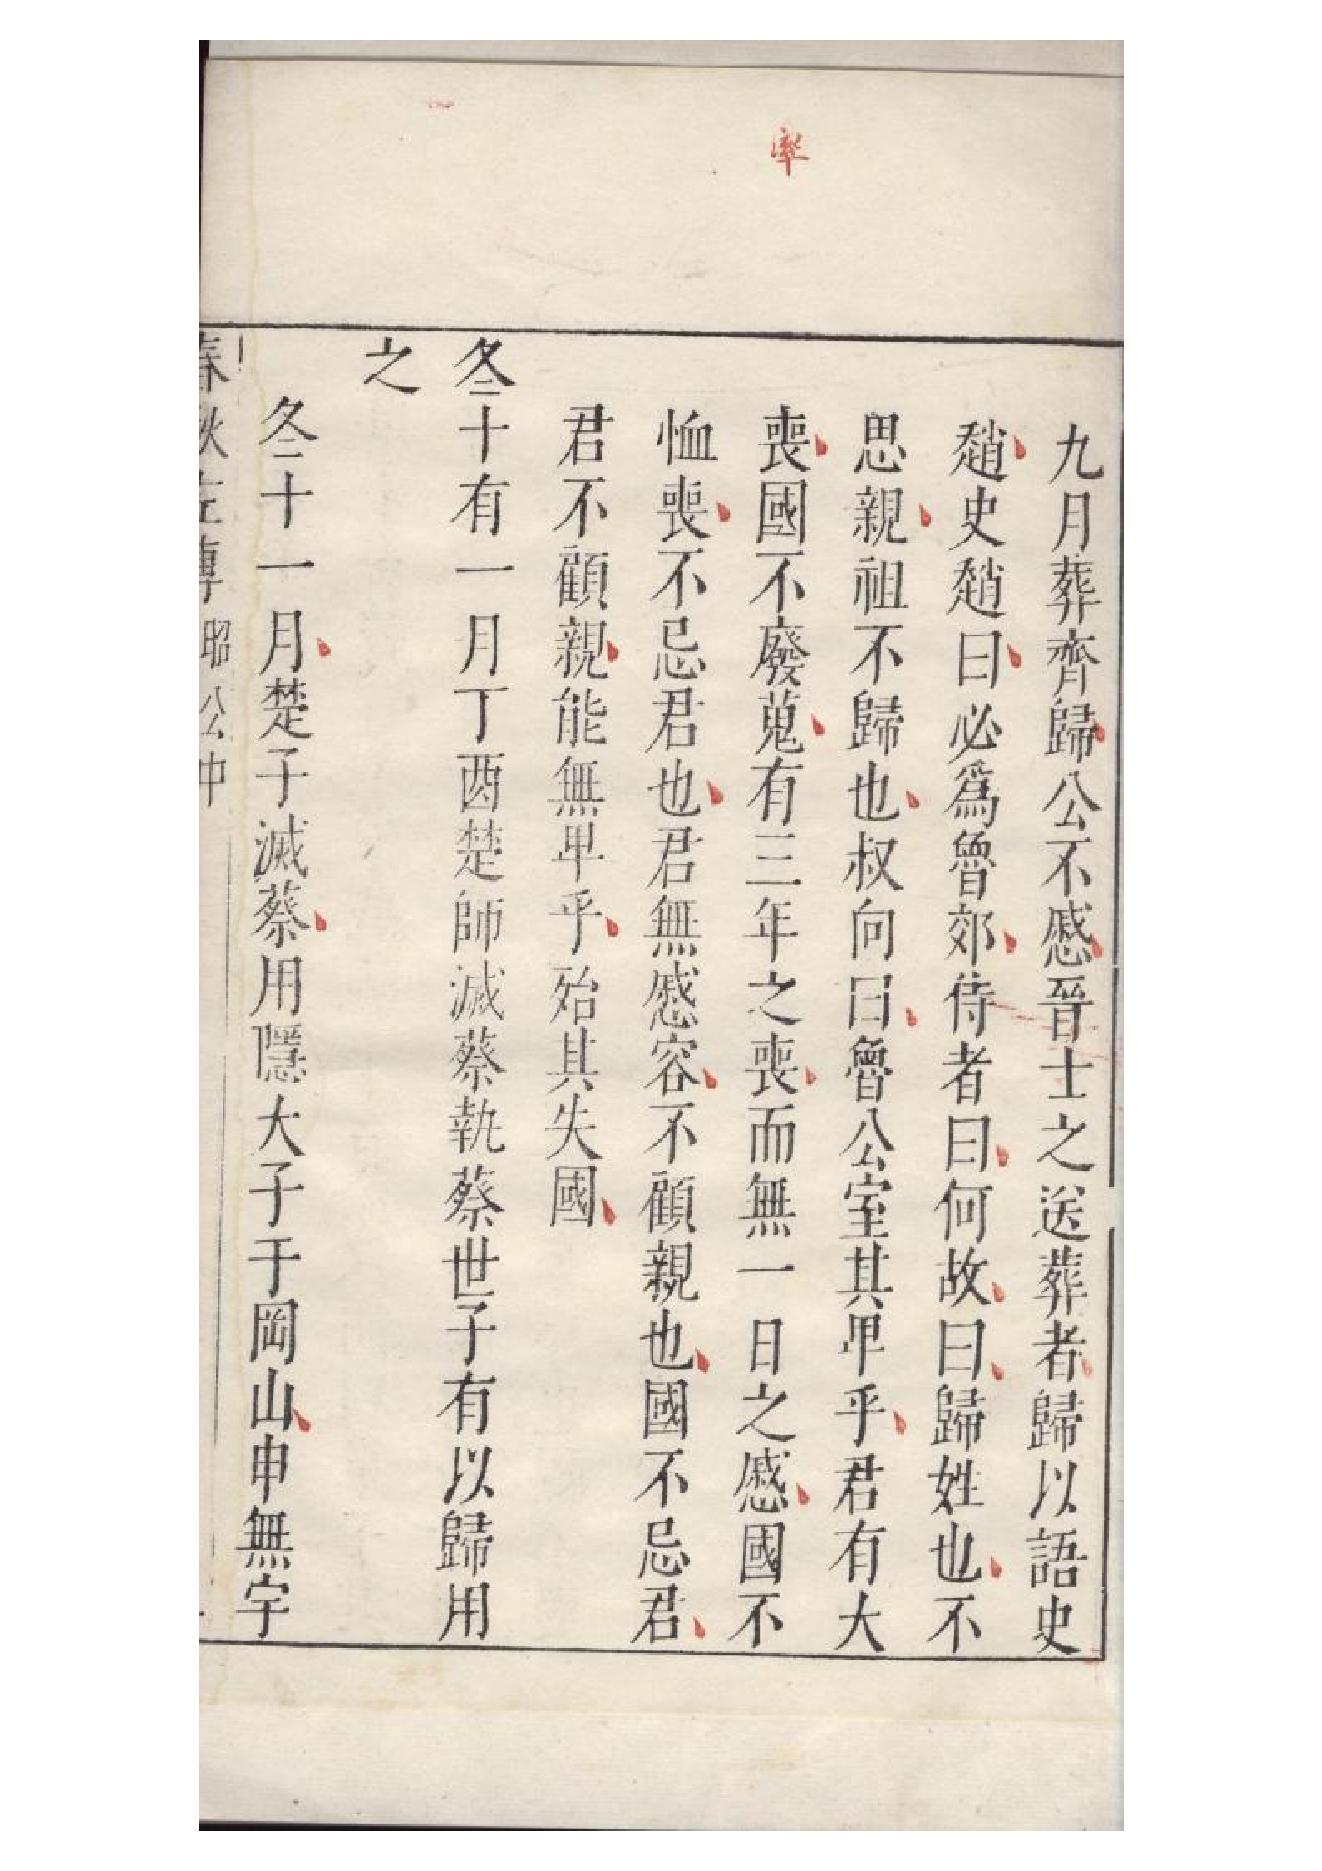 九月葬齊歸公不慼晉士之送葬者歸以語史
趙史趙曰必爲魯郊侍者曰何故曰歸姓也不
思親祖不歸也叔向曰魯公室其卑乎君有大
喪國不廢蒐有三年之喪而無一日之慼國不
恤喪不忌君也君無慼容不顧親也國不忌君
君不顧親能無卑乎殆其失國
冬十有一月丁酉楚師滅蔡執蔡世子有以歸用
之
冬十一月楚子滅蔡用隱大子于岡山申無宇
春秋左傳 昭公中